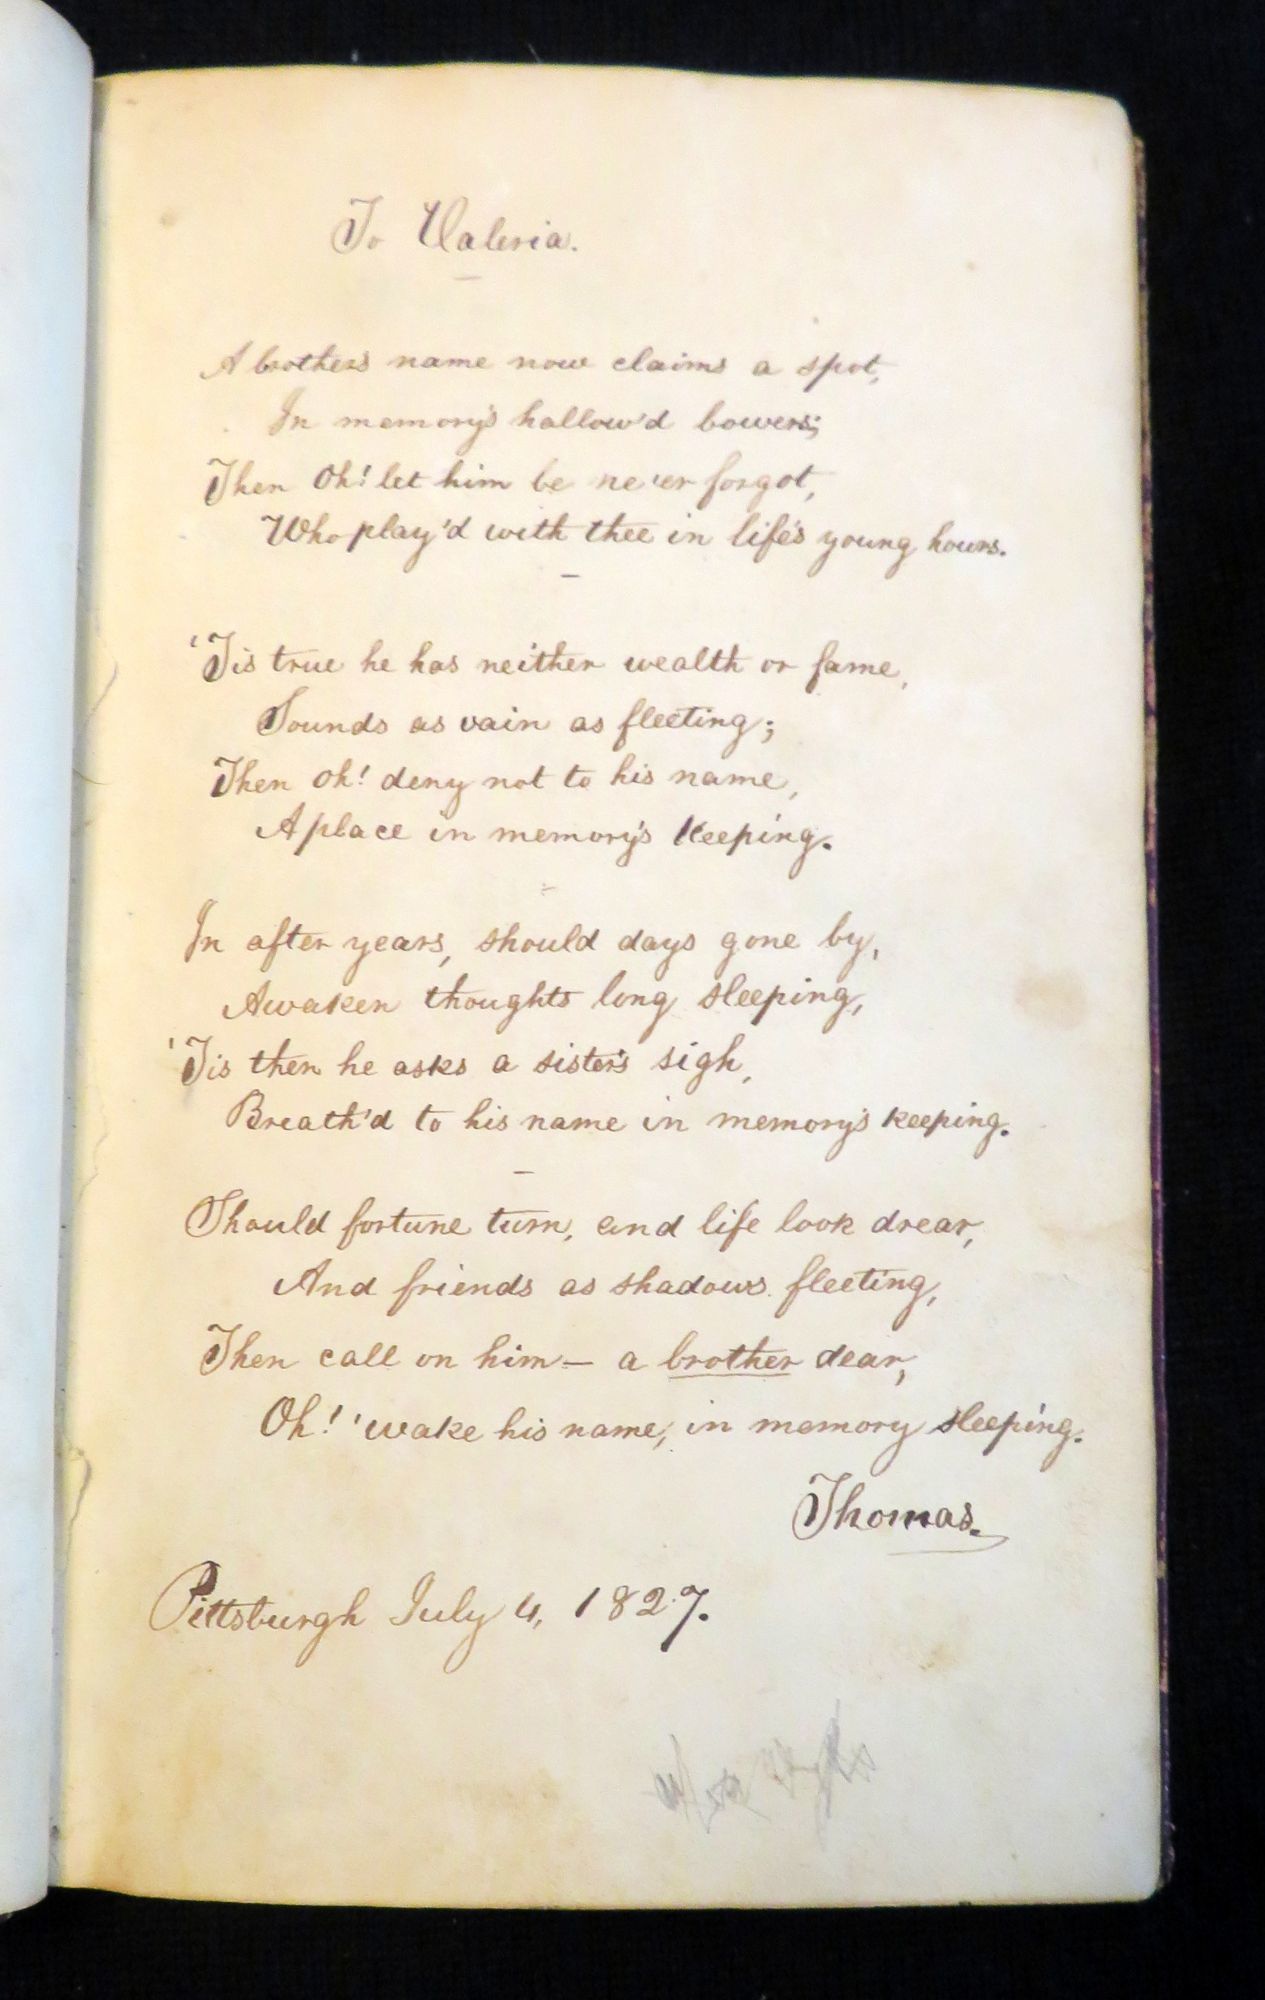 To Valeria.
A brother's name now claims a spot,
In memory's hallow'd bowers;
Then Oh! let him be ne'er forgot,
Who play'd with thee in life's young hours.
'Tis true he has neither wealth or fame,
Sounds as vain as fleeting;
Then oh! deny not to his name,
A place in memory's keeping.
In after years, should days gone by,
Awaken thoughts long sleeping,
'Tis then he asks a sister's sigh,
Breath'd to his name in memory's keeping.
Should fortune turn, and life look drear,
And friends as shadows fleeting,
Then call on him — a brother dear,
Oh! 'wake his name, in memory sleeping.
Thomas.
Pittsburgh July 4, 1827.